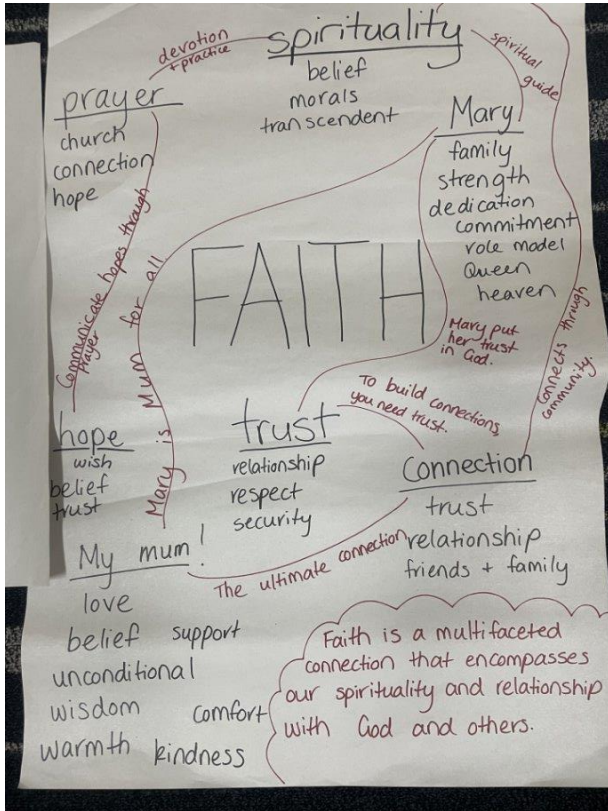 spirituality
belief
morals
transcendent
devotion
+ practice
spiritual
guide
prayer
church
connection
hope
Mary
family
strength
dedication
commitment
role model
Queen
heaven
FAITH
Communicate hopes through
Prayer
Mary is Mum for all
Mary put
her trust
in God.
Connects through
community.
To build connections,
you need trust.
hope
wish
belief
trust
trust
relationship
respect
security
Connection
trust
relationship
friends + family
My mum!
love
belief support
unconditional
wisdom comfort
warmth kindness
The ultimate connection
Faith is a multifaceted
connection that encompasses
our spirituality and relationship
with God and others.